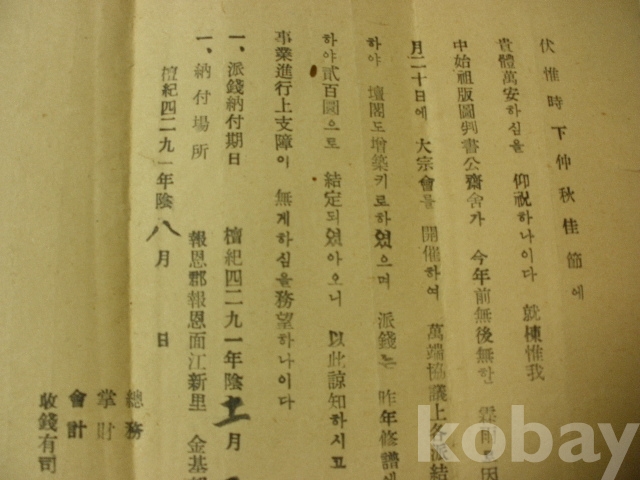 伏惟時下仲秋佳節에
貴體萬安하심을 仰祝하나이다 就悚惟我
中始祖版圖判書公齋舍가 今年前無後無한 霖雨로因
月二十日에 大宗會를 開催하여 萬端協議上各派結
하야 壇閣도增築키로하였으며 派錢는 昨年修譜에
하야貳百圓으로 結定되였아오니 以此諒知하시고
事業進行上支障이 無게하심을務望하나이다
一、派錢納付期日 檀紀四二九一年陰十一月
一、納付場所 報恩郡報恩面江新里 金基
檀紀四二九一年陰八月 日
總務
掌財
會計
收錢有司
kobay